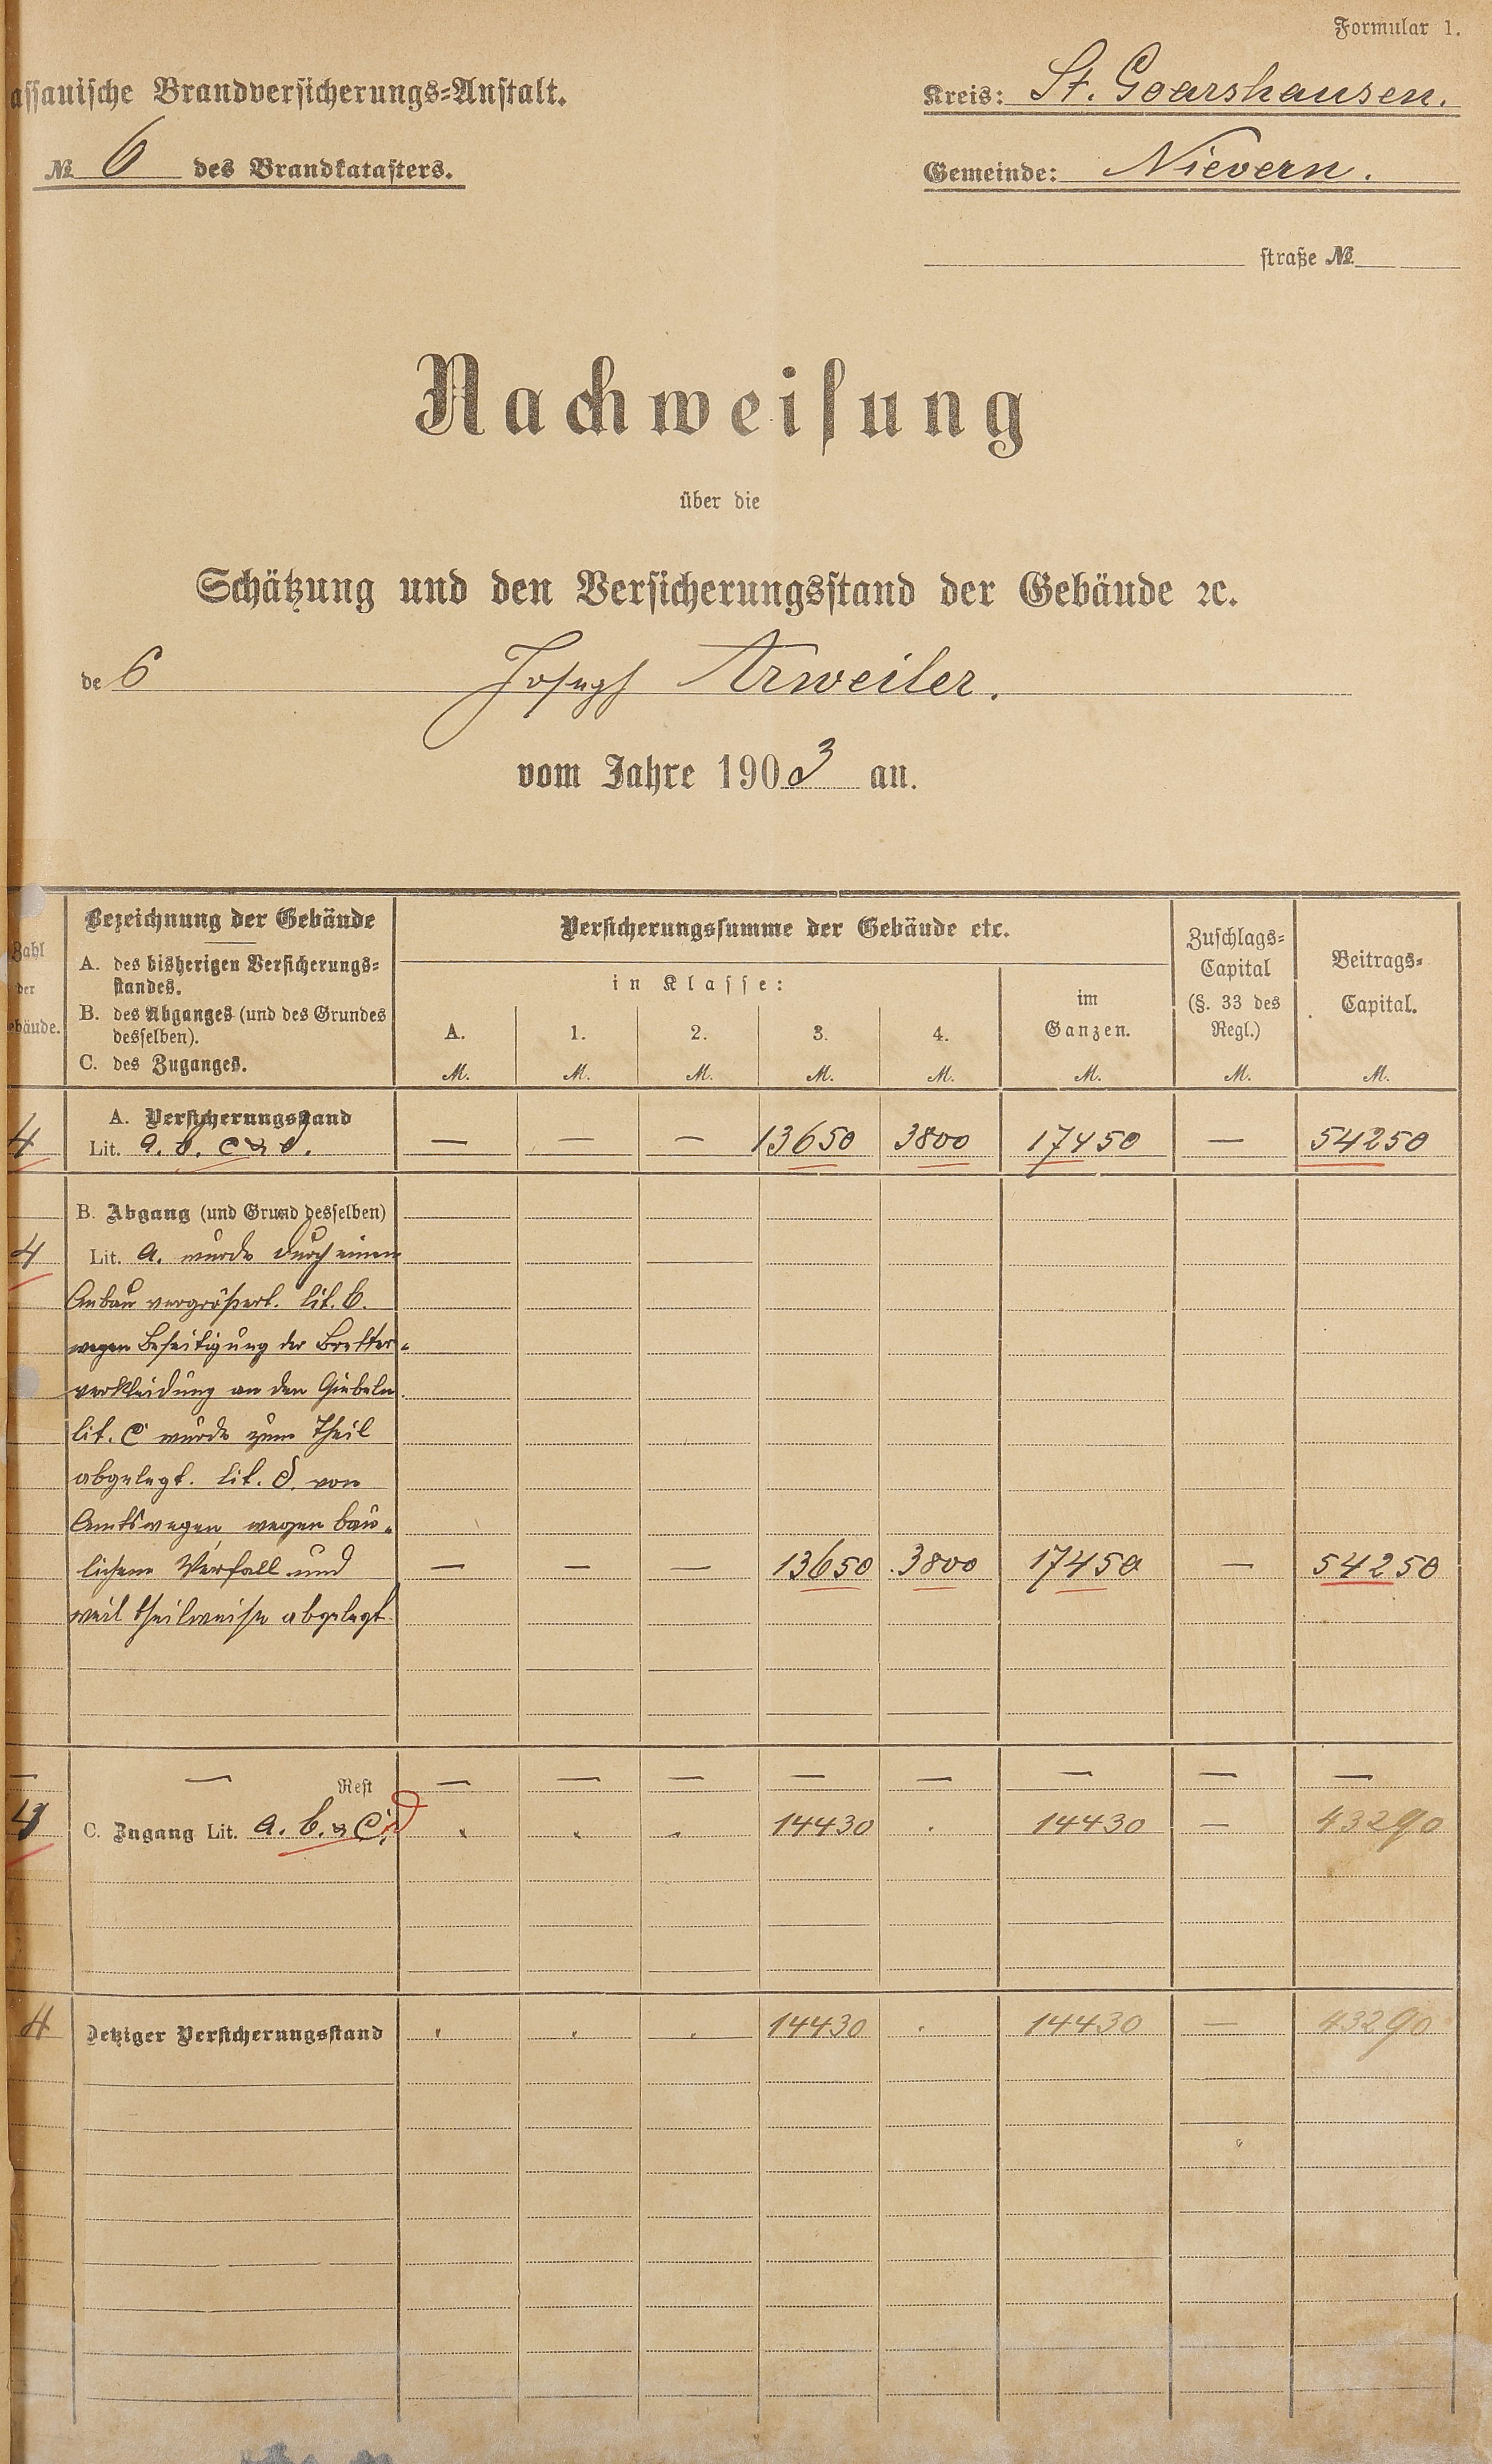 Formular 1.
assauische Brandversicherungs=Anstalt.
Kreis: St. Goarshausen.
№ 6 des Brandkatasters.
Gemeinde: Nievern.
straße №
Nachweisung
über die
Schätzung und den Versicherungsstand der Gebäude ꝛc.
de 6 Joseph Arweiler.
vom Jahre 1903 an.
Zahl der ebäude.
Bezeichnung der Gebäude
A. des bisherigen Versicherungs=
standes.
B. des Abganges (und des Grundes
desselben).
C. des Zuganges.
Versicherungssumme der Gebäude etc.
in Klasse:
A. 1. 2. 3. 4.
im
Ganzen.
Zuschlags=
Capital
(§. 33 des
Regl.)
Beitrags=
Capital.
M. M. M. M. M. M. M. M.
A. Versicherungsstand
4 Lit. a. b. c & d. — — — 13650 3800 17450 — 54250
B. Abgang (und Grund desselben)
4 Lit. a. wurde durch einen
Anbau vergrößert. lit. b.
wegen Beseitigung der Bretter-
verkleidung an den Giebeln.
lit. c wurde zum Theil
abgelegt. lit. d. von
Amtswegen wegen bau-
lichem Verfall und — — — 13650 3800 17450 — 54250
weil theilweise abgelegt.
— — Rest — — — — — — — —
4 C. Zugang Lit. a. b. & c. d " " " 14430 . 14430 — 43290
4 Jetziger Versicherungsstand " " " 14430 . 14430 — 43290